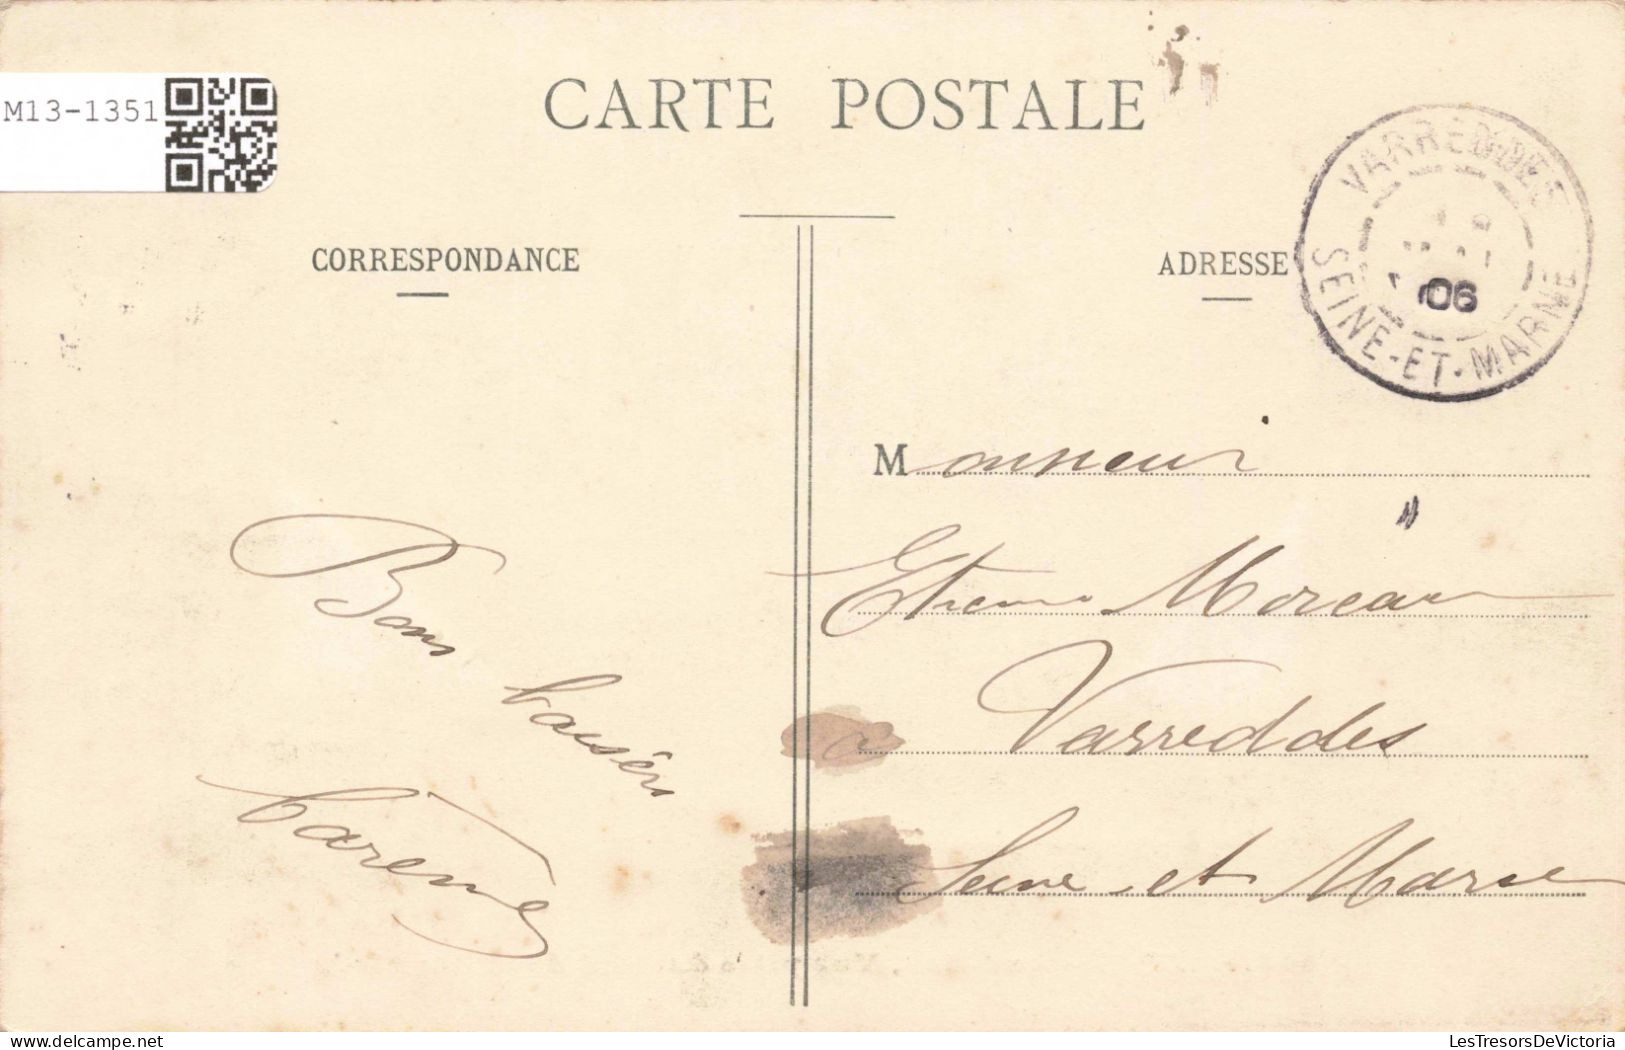 M13-1351
CARTE POSTALE
CORRESPONDANCE
ADRESSE
VARREDDES
06
SEINE-ET-MARNE
Monsieur
Etienne Moreau
à Varreddes
Seine et Marne
Bons baisers
delcampe.net
LesTresorsDeVictoria